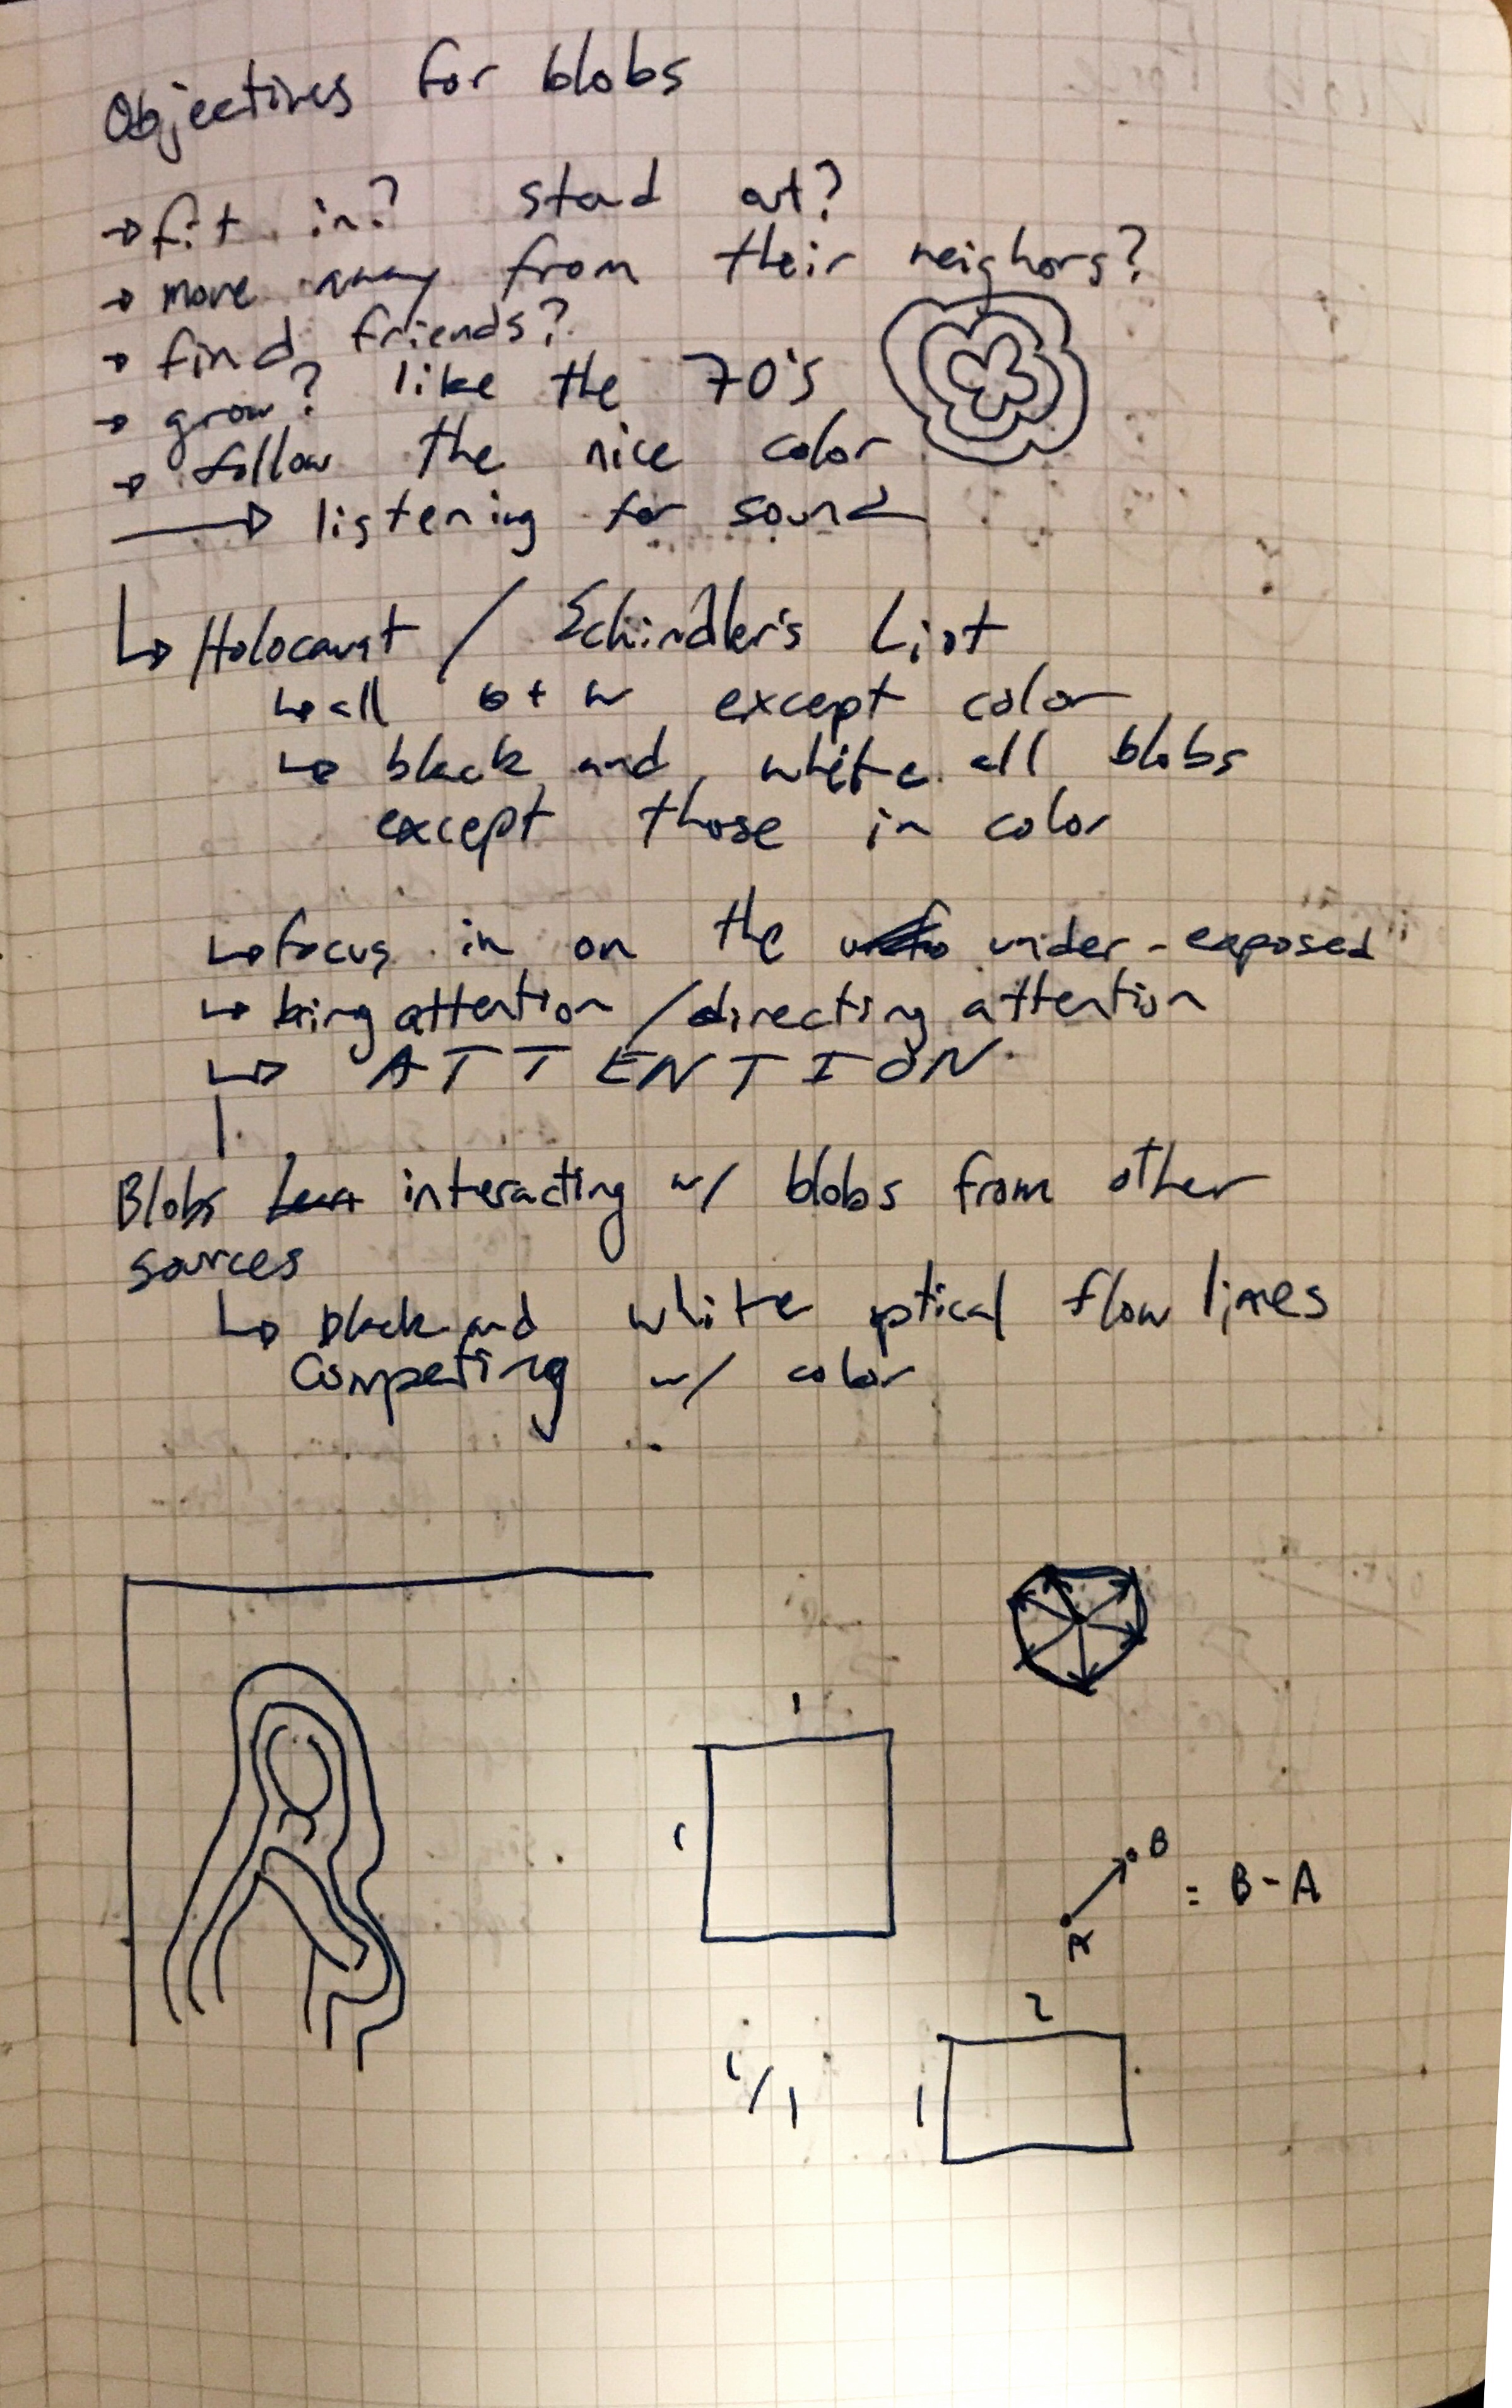 Objectives for blobs
→ fit in? stand out?
→ move away from their neighors?
→ find friends?
→ grow? like the 70's
→ follow the nice color
→ listening for sound
↳ Holocaust / Schindler's List
↳ all b + w except color
↳ black and white all blobs
except those in color
↳ focus in on the under-exposed
↳ bring attention / directing attention
↳ ATTENTION
Blobs interacting w/ blobs from other
sources
↳ black and white optical flow lines
competing w/ color
1
1
B
= B - A
A
2
1/1
1